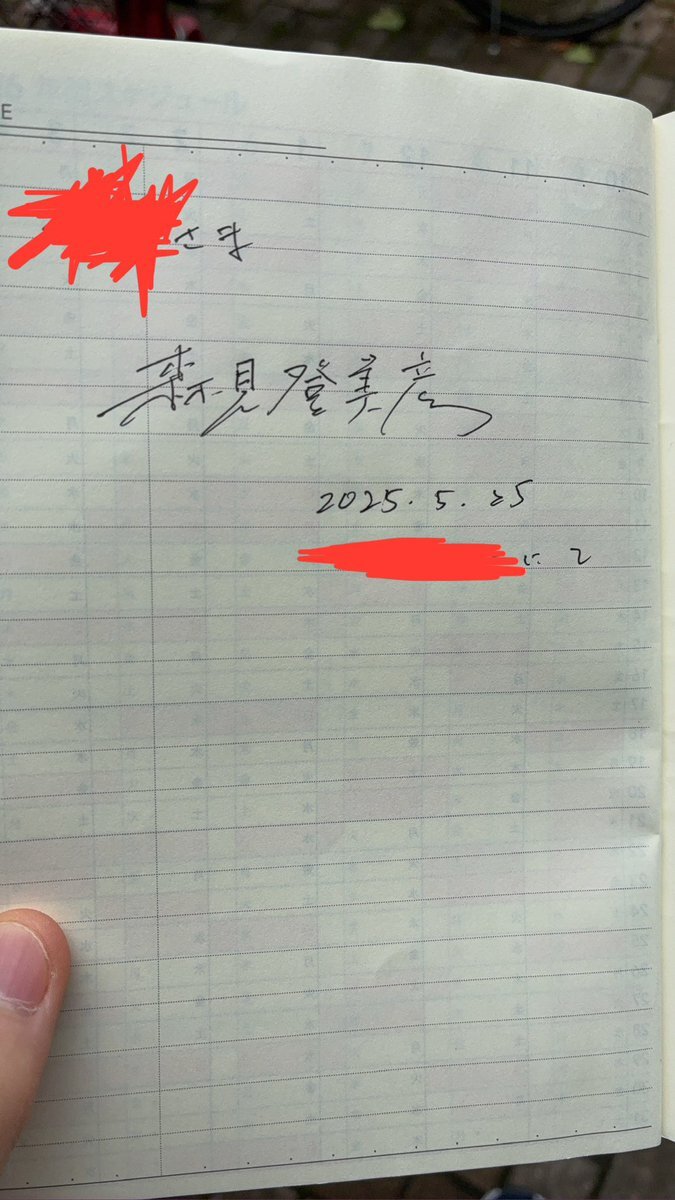 E
さま
森見登美彦
2025.5.25
にて